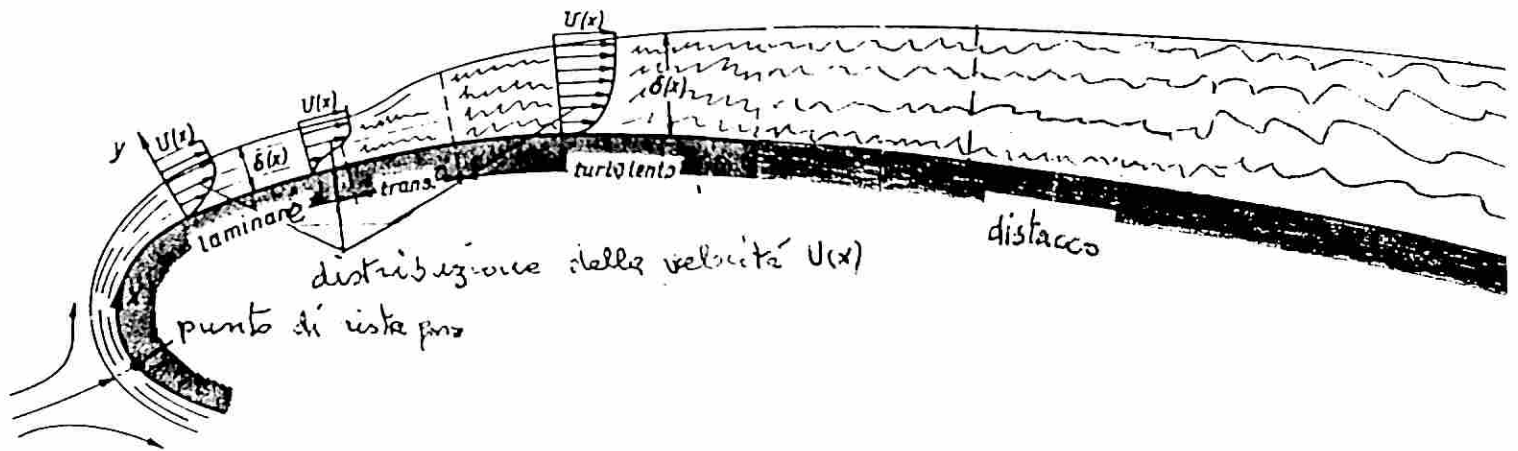 U(x)
U(x)
y
U(x)
δ(x)
δ(x)
laminare
trans.
turbolento
distacco
distribuzione della velocitá U(x)
punto di ristagno